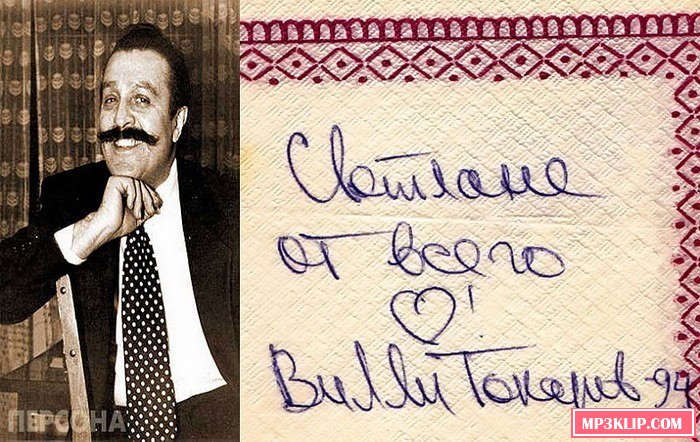 Светлане
от всего
♡!
Вилли Токарев-94
ПЕРСОНА
MP3KLIP.COM